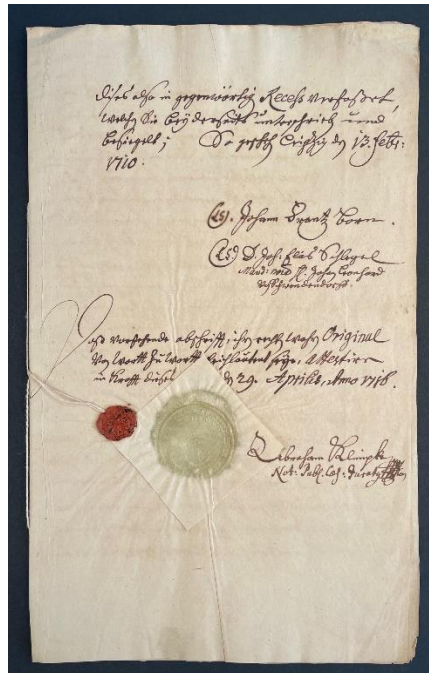 dises also in gegenwärtig Recess verfasset,
welchen Sie beyderseits unterschrieben und
besiegelt; So geschehen Leipzig den 13. Febr:
1710.
(LS). Johann Frantz Born.
(LS) D. Joh: Elias Schlegel
Johann Leonhard
Daß vorstehende abschrifft, ihrem Original
von wortt zu wortt gleichlautend seye, Attestire
in krafft dieses den 29. Aprilis, Anno 1716.
Abraham Klimpke
Not: Publ: Cæs: